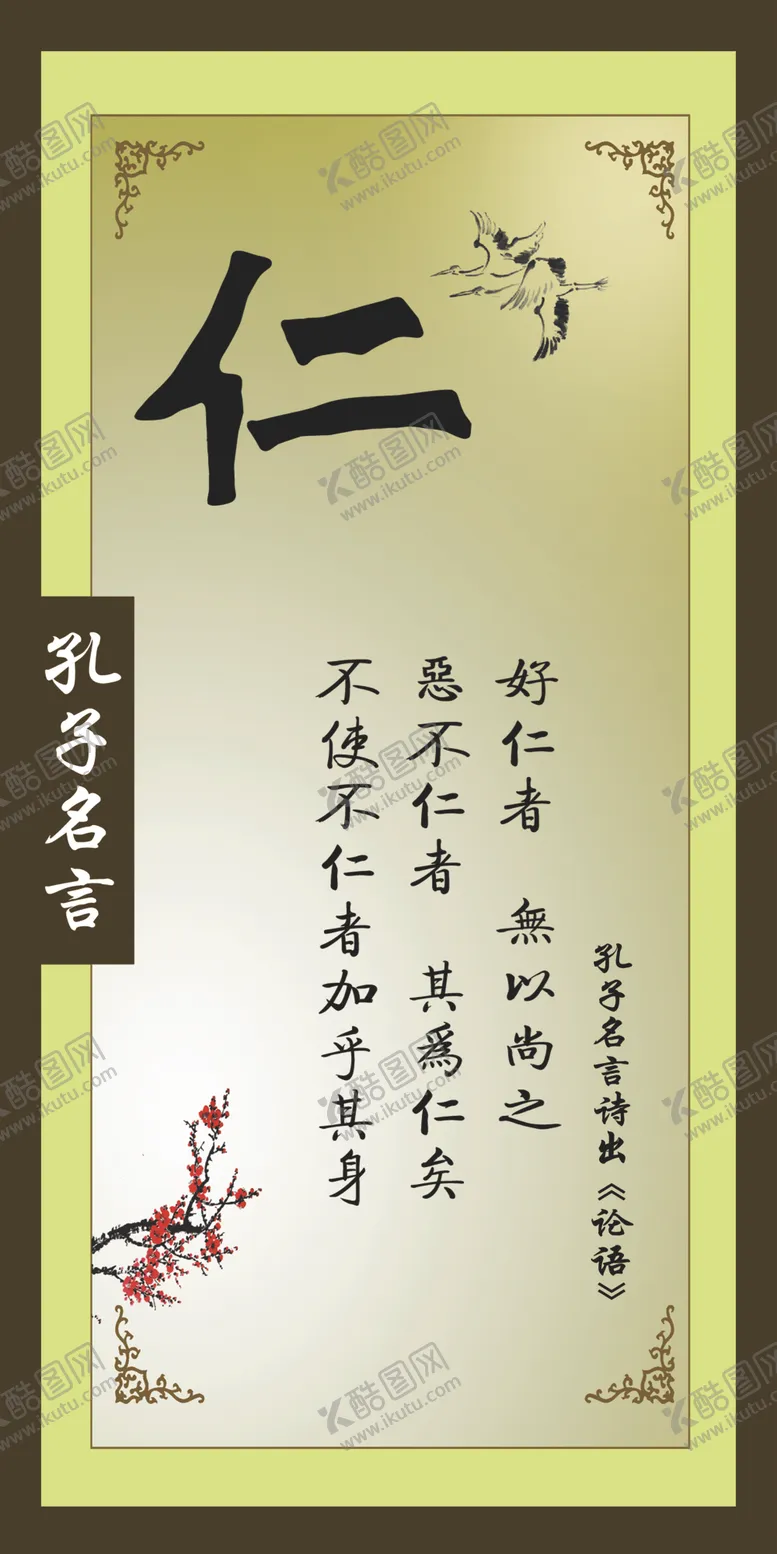 仁
孔子名言
孔子名言诗出《论语》
好仁者 無以尚之
惡不仁者 其爲仁矣
不使不仁者加乎其身
酷图网
www.ikutu.com